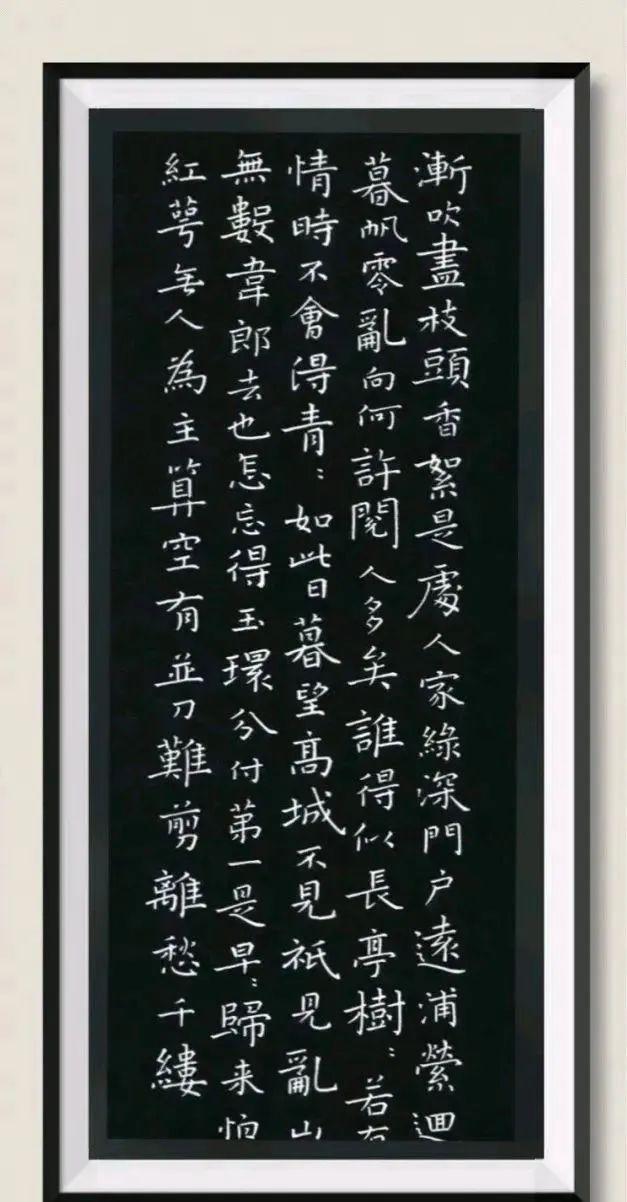 漸吹盡枝頭香絮是處人家綠深門户遠浦縈迴
暮帆零亂向何許閱人多矣誰得似長亭樹：若有
情時不會得青：如此日暮望高城不見祇見亂山
無數韋郎去也怎忘得玉環分付第一是早：歸来怕
紅萼無人為主算空有並刀難剪離愁千縷